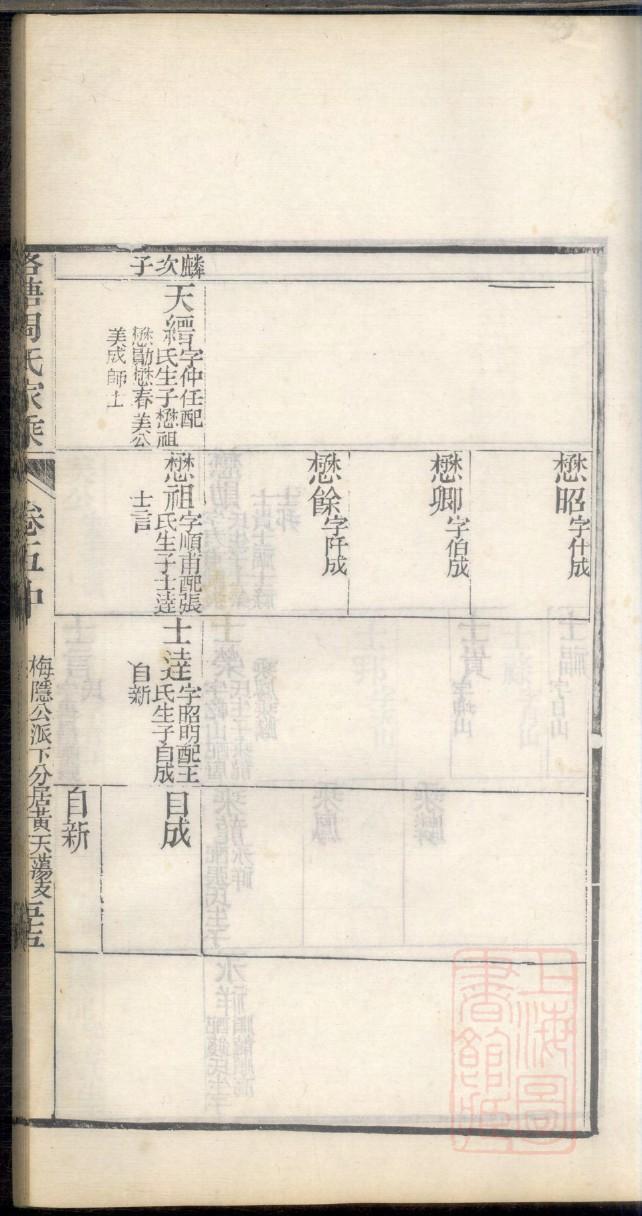 懋昭字什成
懋卿字伯成
懋餘字阡成
麟次子
天縉字仲任配
氏生子懋祖
懋勛懋春美公
美成師士
懋祖字順甫配張
氏生子士逹
士言
士逹字昭明配王
氏生子自成
自新
自成
自新
周氏家乘
卷五中
梅隱公派下分居黃天蕩支
上海圖書館藏